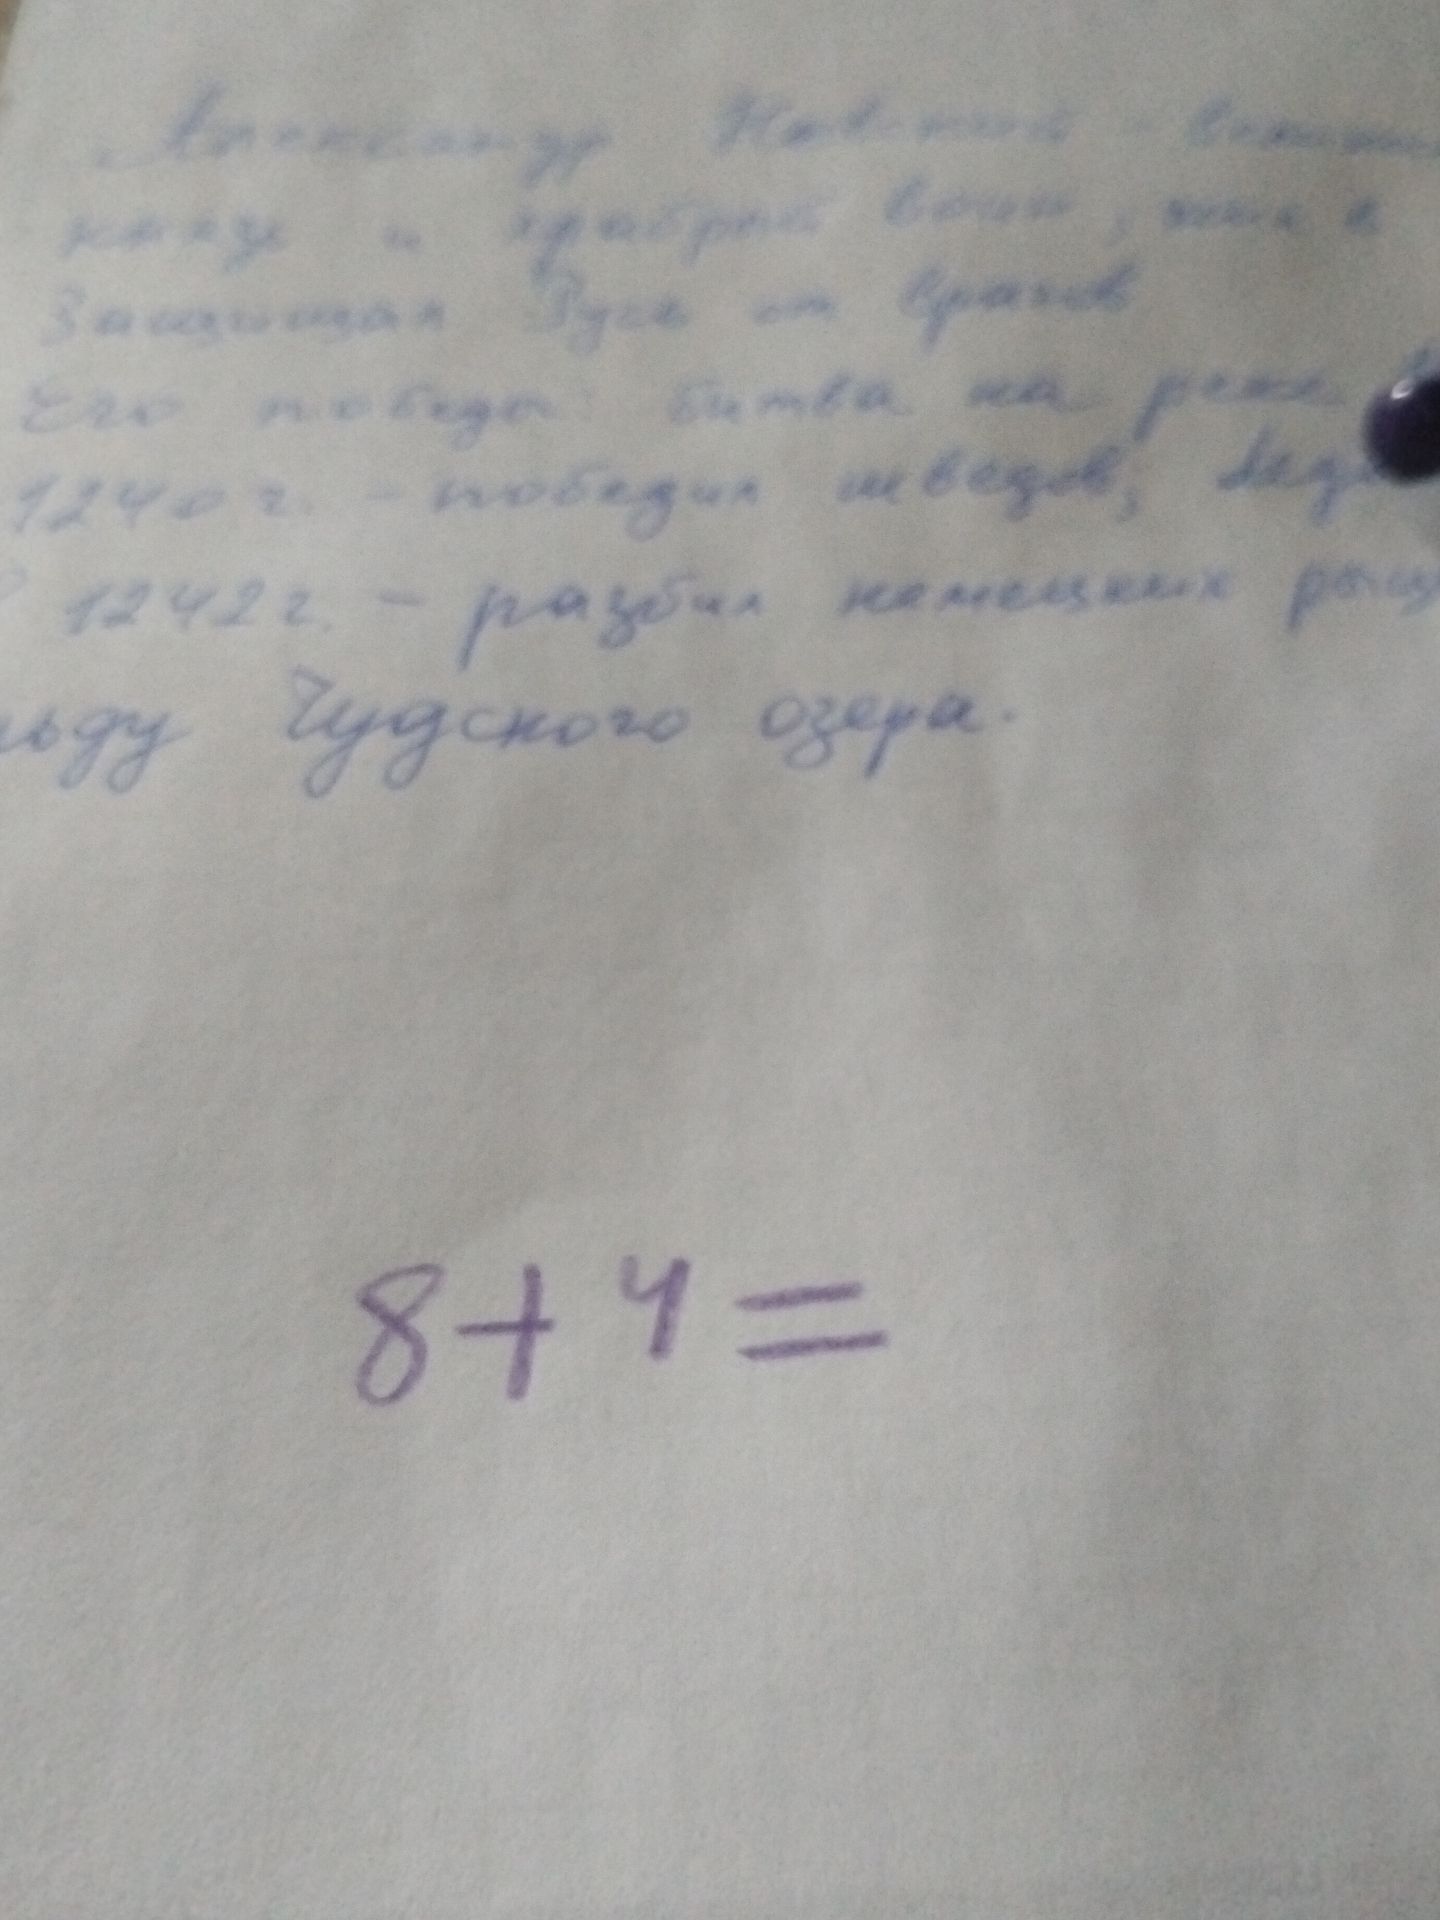 Александр Невский - великий
князь и храбрый воин, жил в
Защищал Русь от врагов
Его победы: битва на реке
1240 г. - победил шведов, Ледо
1242 г. - разбил немецких рыц
льду Чудского озера.
8+4=